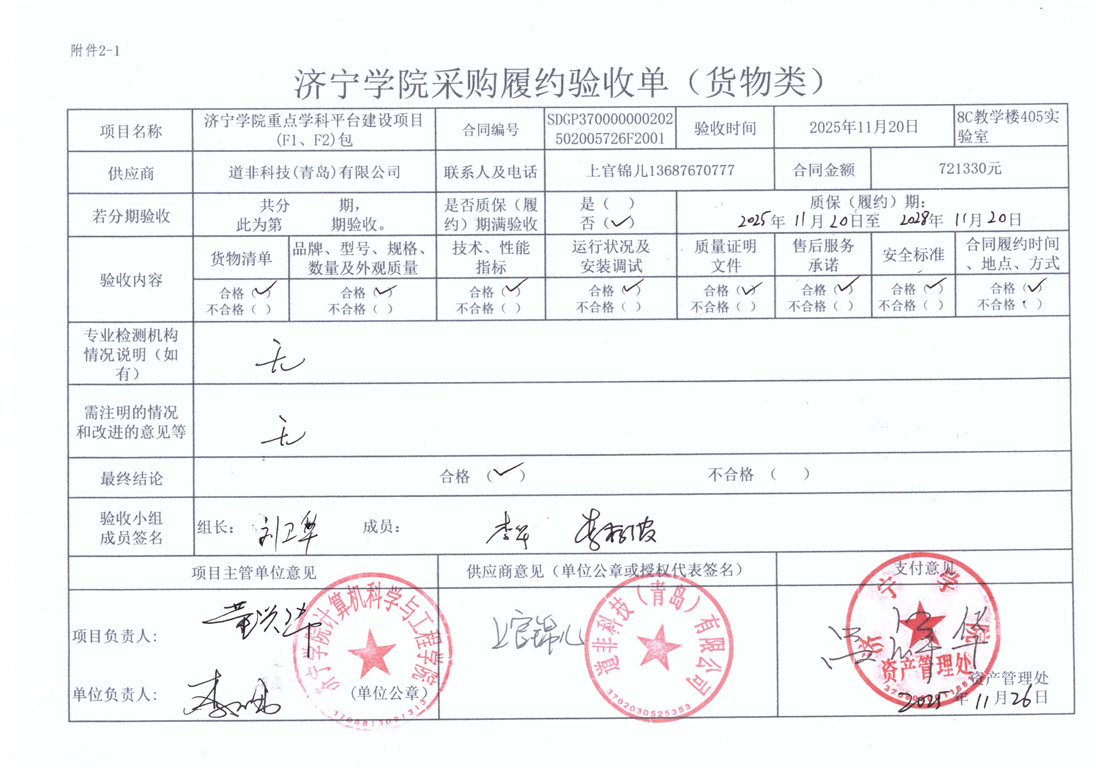 附件2-1
济宁学院采购履约验收单（货物类）
项目名称
济宁学院重点学科平台建设项目
(F1、F2)包
合同编号
SDGP370000000202
502005726F2001
验收时间
2025年11月20日
8C教学楼405实
验室
供应商
道非科技(青岛)有限公司
联系人及电话
上官锦儿13687670777
合同金额
721330元
若分期验收
共分 期，
此为第 期验收。
是否质保（履
约）期满验收
是（ ）
否（✓）
质保（履约）期：
2025年11月20日至 2028年11月20日
验收内容
货物清单
品牌、型号、规格、
数量及外观质量
技术、性能
指标
运行状况及
安装调试
质量证明
文件
售后服务
承诺
安全标准
合同履约时间
、地点、方式
合格（✓）
不合格（ ）
合格（✓）
不合格（ ）
合格（✓）
不合格（ ）
合格（✓）
不合格（ ）
合格（✓）
不合格（ ）
合格（✓）
不合格（ ）
合格（✓）
不合格（ ）
合格（✓）
不合格（ ）
专业检测机构
情况说明（如
有）
无
需注明的情况
和改进的意见等
无
最终结论
合格 （✓） 不合格 （ ）
验收小组
成员签名
组长： 刘卫华 成员：
项目主管单位意见
供应商意见（单位公章或授权代表签名）
支付意见
项目负责人：
单位负责人：
（单位公章）
济宁学院计算机科学与工程学院
上官锦儿
道非科技（青岛）有限公司
3702030525353
济宁学院
资产管理处
资产管理处
2025年11月26日